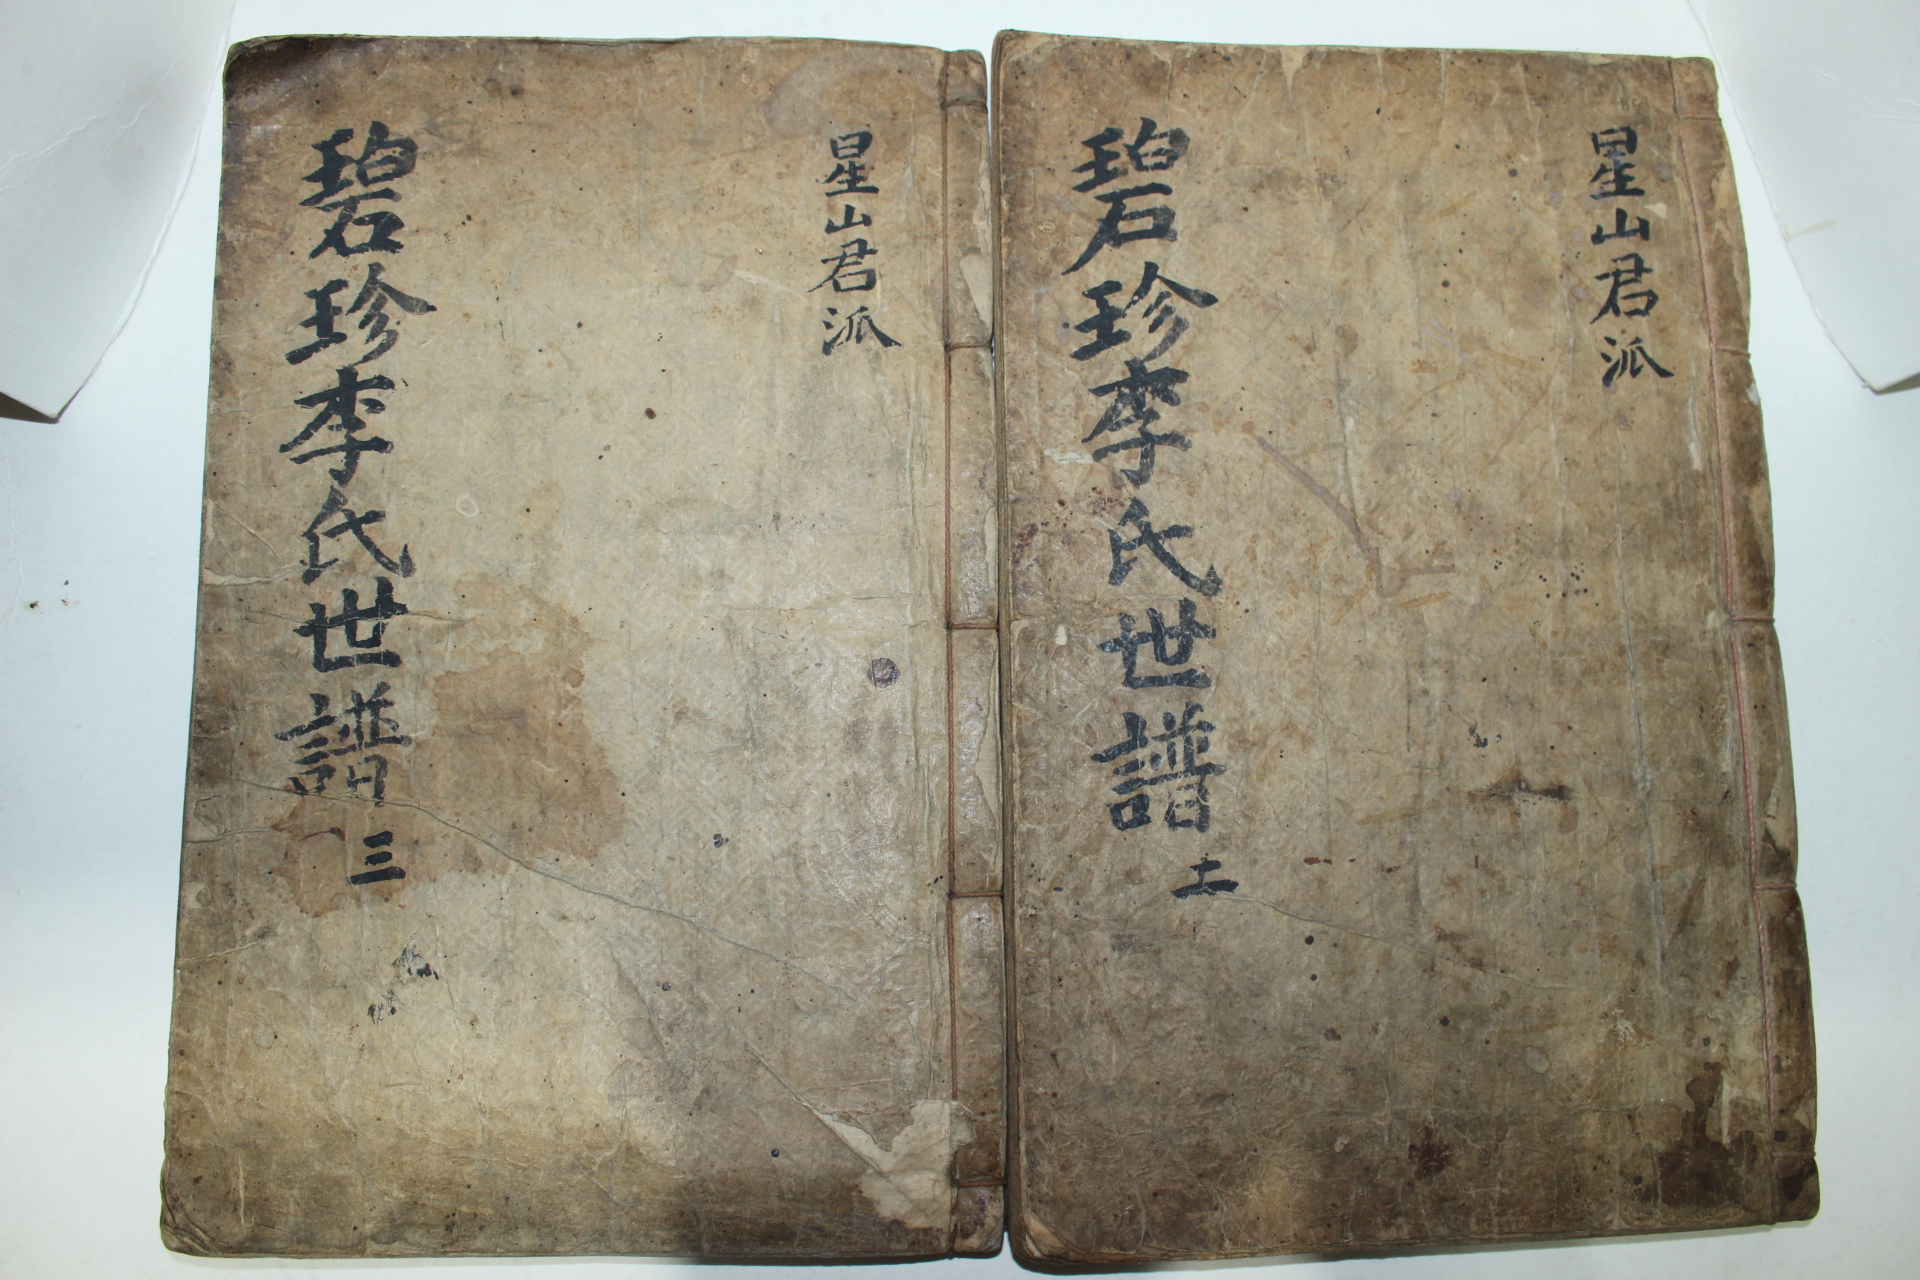 星山君派
碧珍李氏世譜 十一
星山君派
碧珍李氏世譜 三